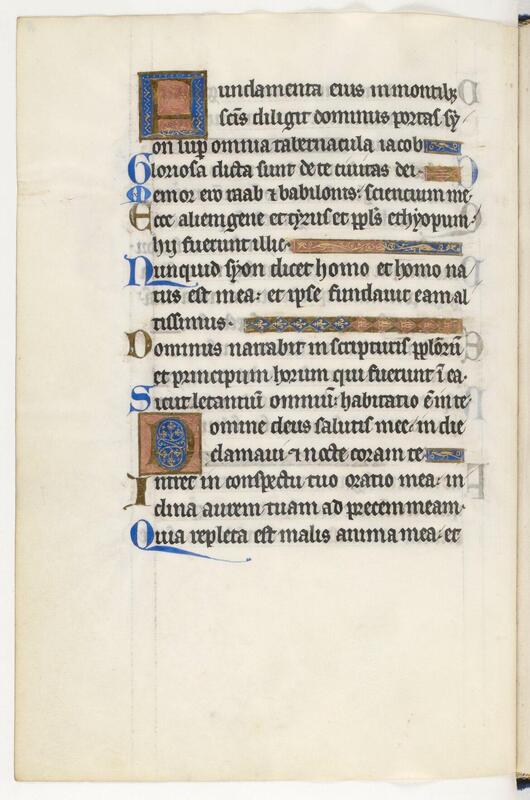 Fundamenta eius in montibꝫ
scīs diligit dominus portas sy
on suꝑ omnia tabernacula iacob
Gloriosa dicta sunt de te ciuitas dei·
Memor ero raab ⁊ babilonis: scientium me·
Ecce alienigene et tyrus et ppl̄s ethyopum·
hij fuerunt illic·
Nunquid syon dicet homo et homo na
tus est mea· et ipse fundauit eam al
tissimus·
Dominus narrabit in scripturis ppl̄orū
et principum horum qui fuerunt ī ea·
Sicut letantiū omniū· habitatio ē in te·
Domine deus salutis mee· in die
clamaui ⁊ nocte coram te·
Intret in conspectu tuo oratio mea· in
clina aurem tuam ad precem meam·
Quia repleta est malis anima mea· et